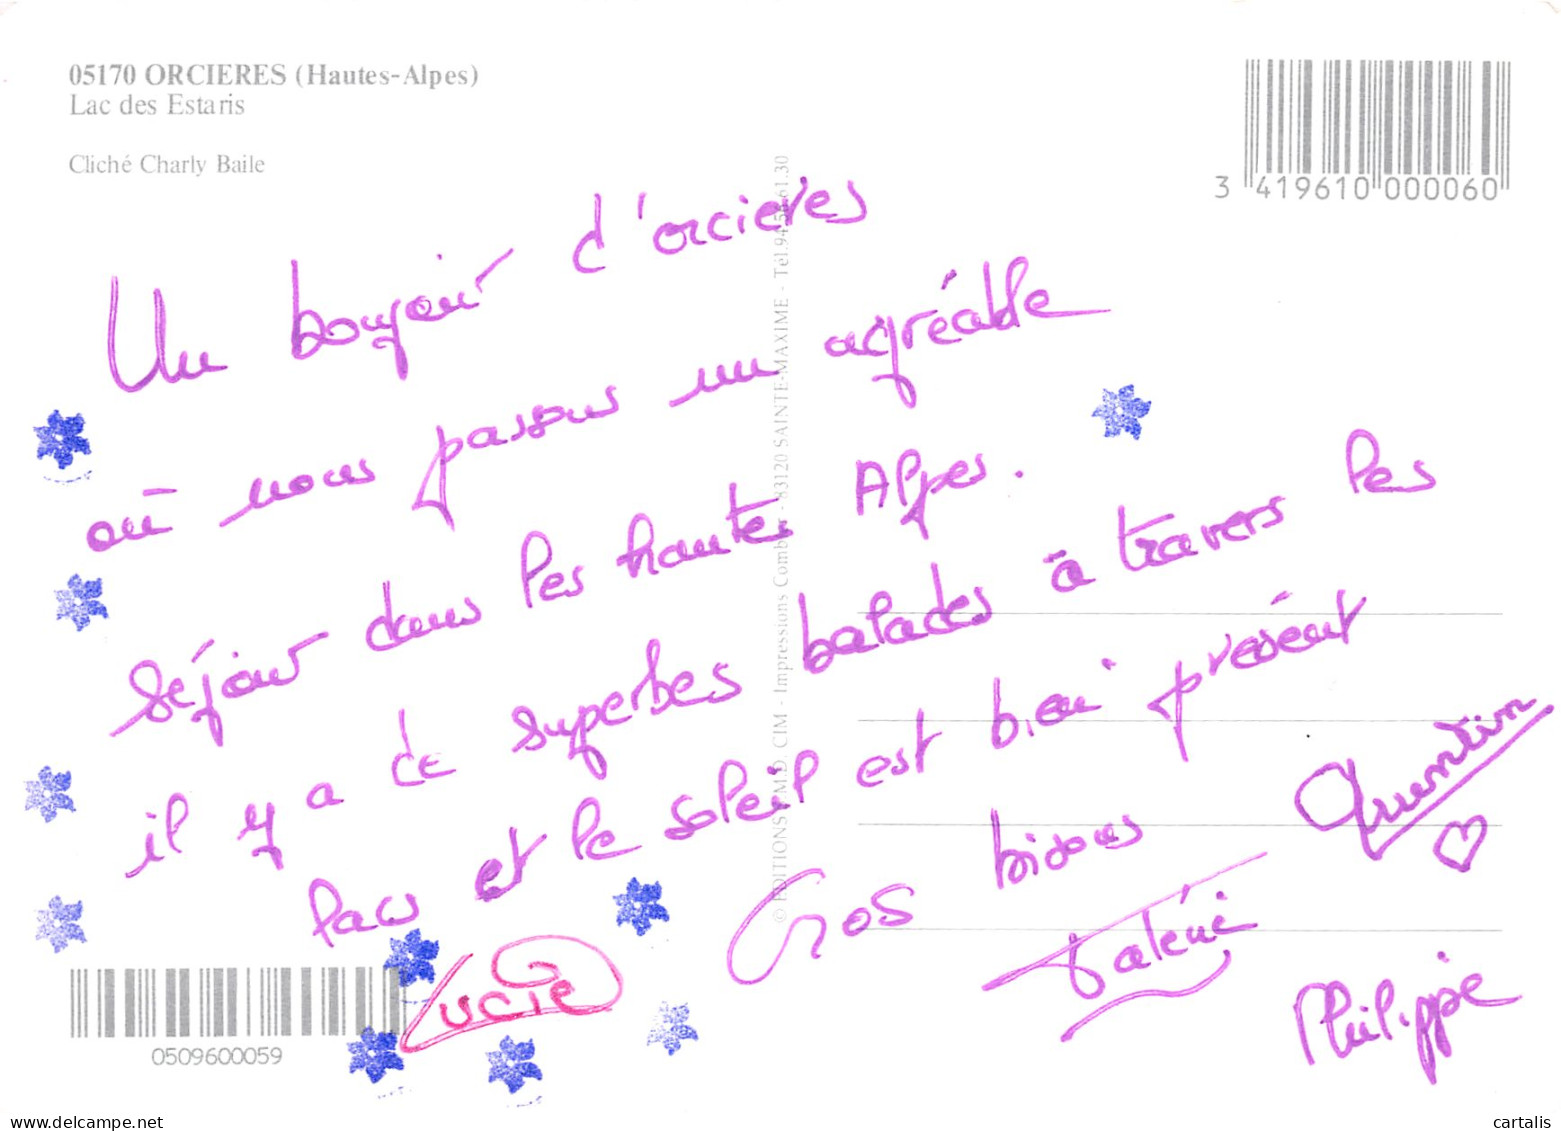 05170 ORCIERES (Hautes-Alpes)
Lac des Estaris
Cliché Charly Baile
3 419610 000060
Un boujour d'orcieres
où nous passons un agréable
séjour dans les hautes Alpes.
il y a de superbes balades à travers les
lacs et le soleil est bien présent
Gros bisous
Quentin
Valérie
Philippe
Lucie
© EDITIONS P.M.D. CIM - Impressions Combier - 83120 SAINTE-MAXIME - Tél.
0509600059
www.delcampe.net
cartalis